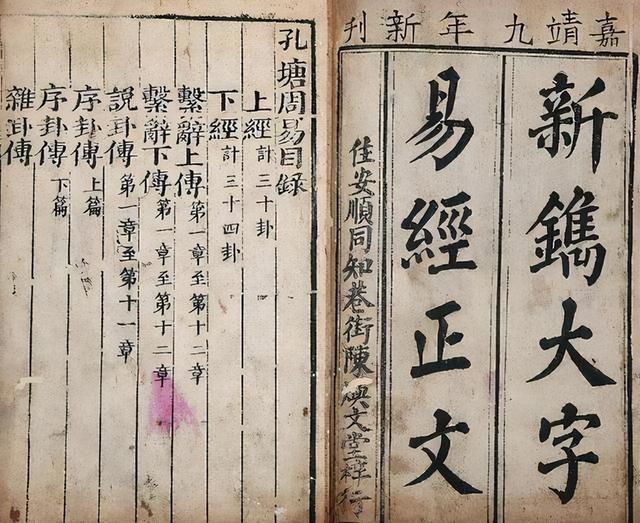 嘉靖九年新刊
新鐫大字
易經正文
佳安順同知巷街陳煥文堂梓行
孔塘周易目録
上經 計三十卦
下經 計三十四卦
繫辭上傳 第一章至第十二章
繫辭下傳 第一章至第十二章
說卦傳 第一章至第十一章
序卦傳 上篇
序卦傳 下篇
雜卦傳